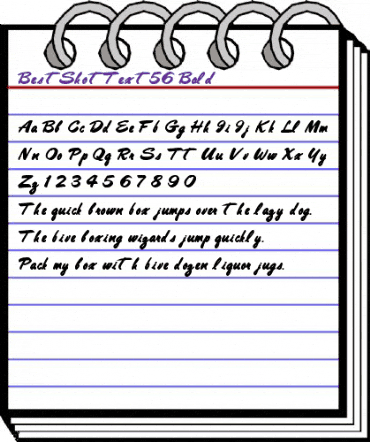 Best Shot Text 56 Bold
Aa Bb Cc Dd Ee Ff Gg Hh Ii Jj Kk Ll Mm
Nn Oo Pp Qq Rr Ss Tt Uu Vv Ww Xx Yy
Zz 1 2 3 4 5 6 7 8 9 0
The quick brown fox jumps over the lazy dog.
The five boxing wizards jump quickly.
Pack my box with five dozen liquor jugs.